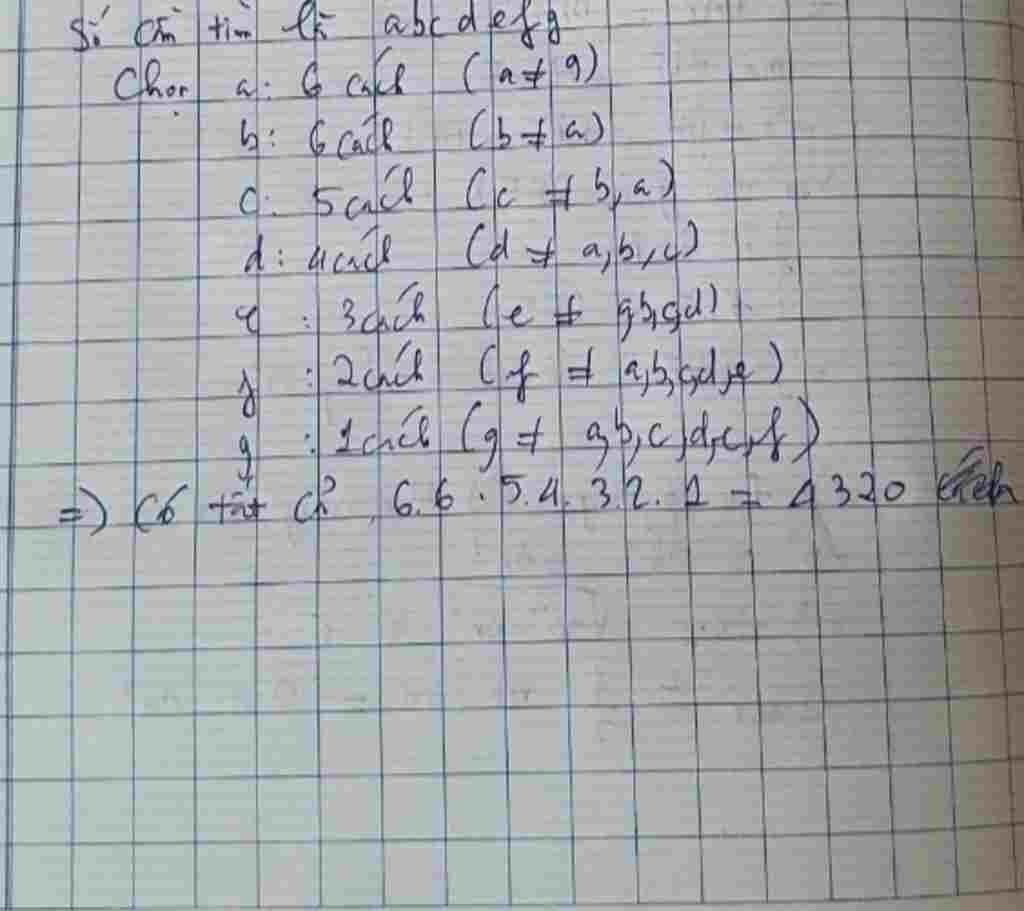 Số cần tìm là abcdefg
Chọn a: 6 cách (a ≠ 9)
b: 6 cách (b ≠ a)
c: 5 cách (c ≠ b, a)
d: 4 cách (d ≠ a, b, c)
e : 3 cách (e ≠ a, b, c, d)
f : 2 cách (f ≠ a, b, c, d, e)
g : 1 cách (g ≠ a, b, c, d, e, f)
=) Có tất cả 6. 6 . 5. 4. 3. 2. 1 = 4320